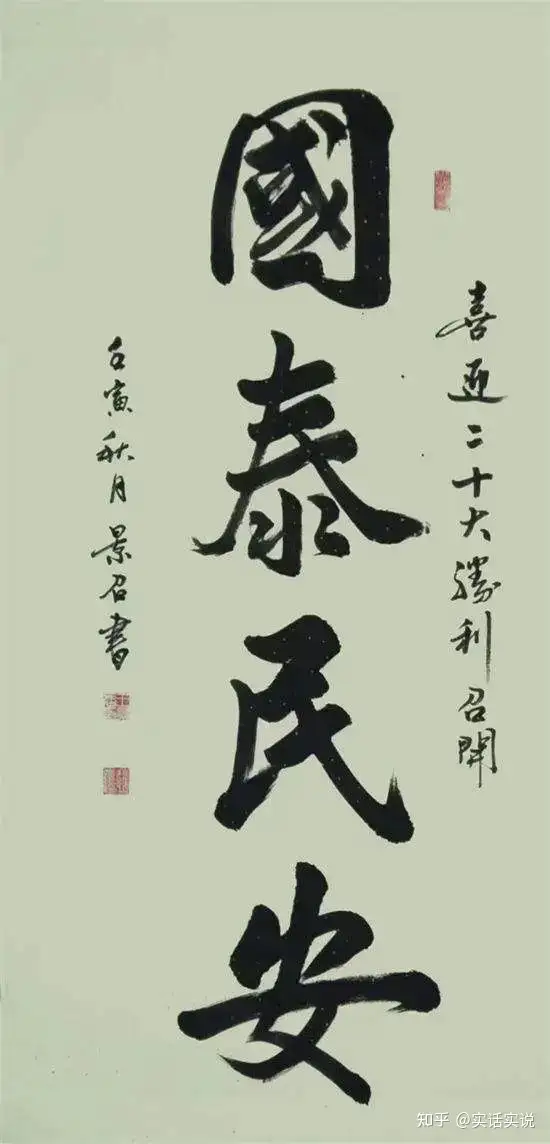 喜迎二十大勝利召開
國泰民安
壬寅秋月景召書
知乎 @实话实说